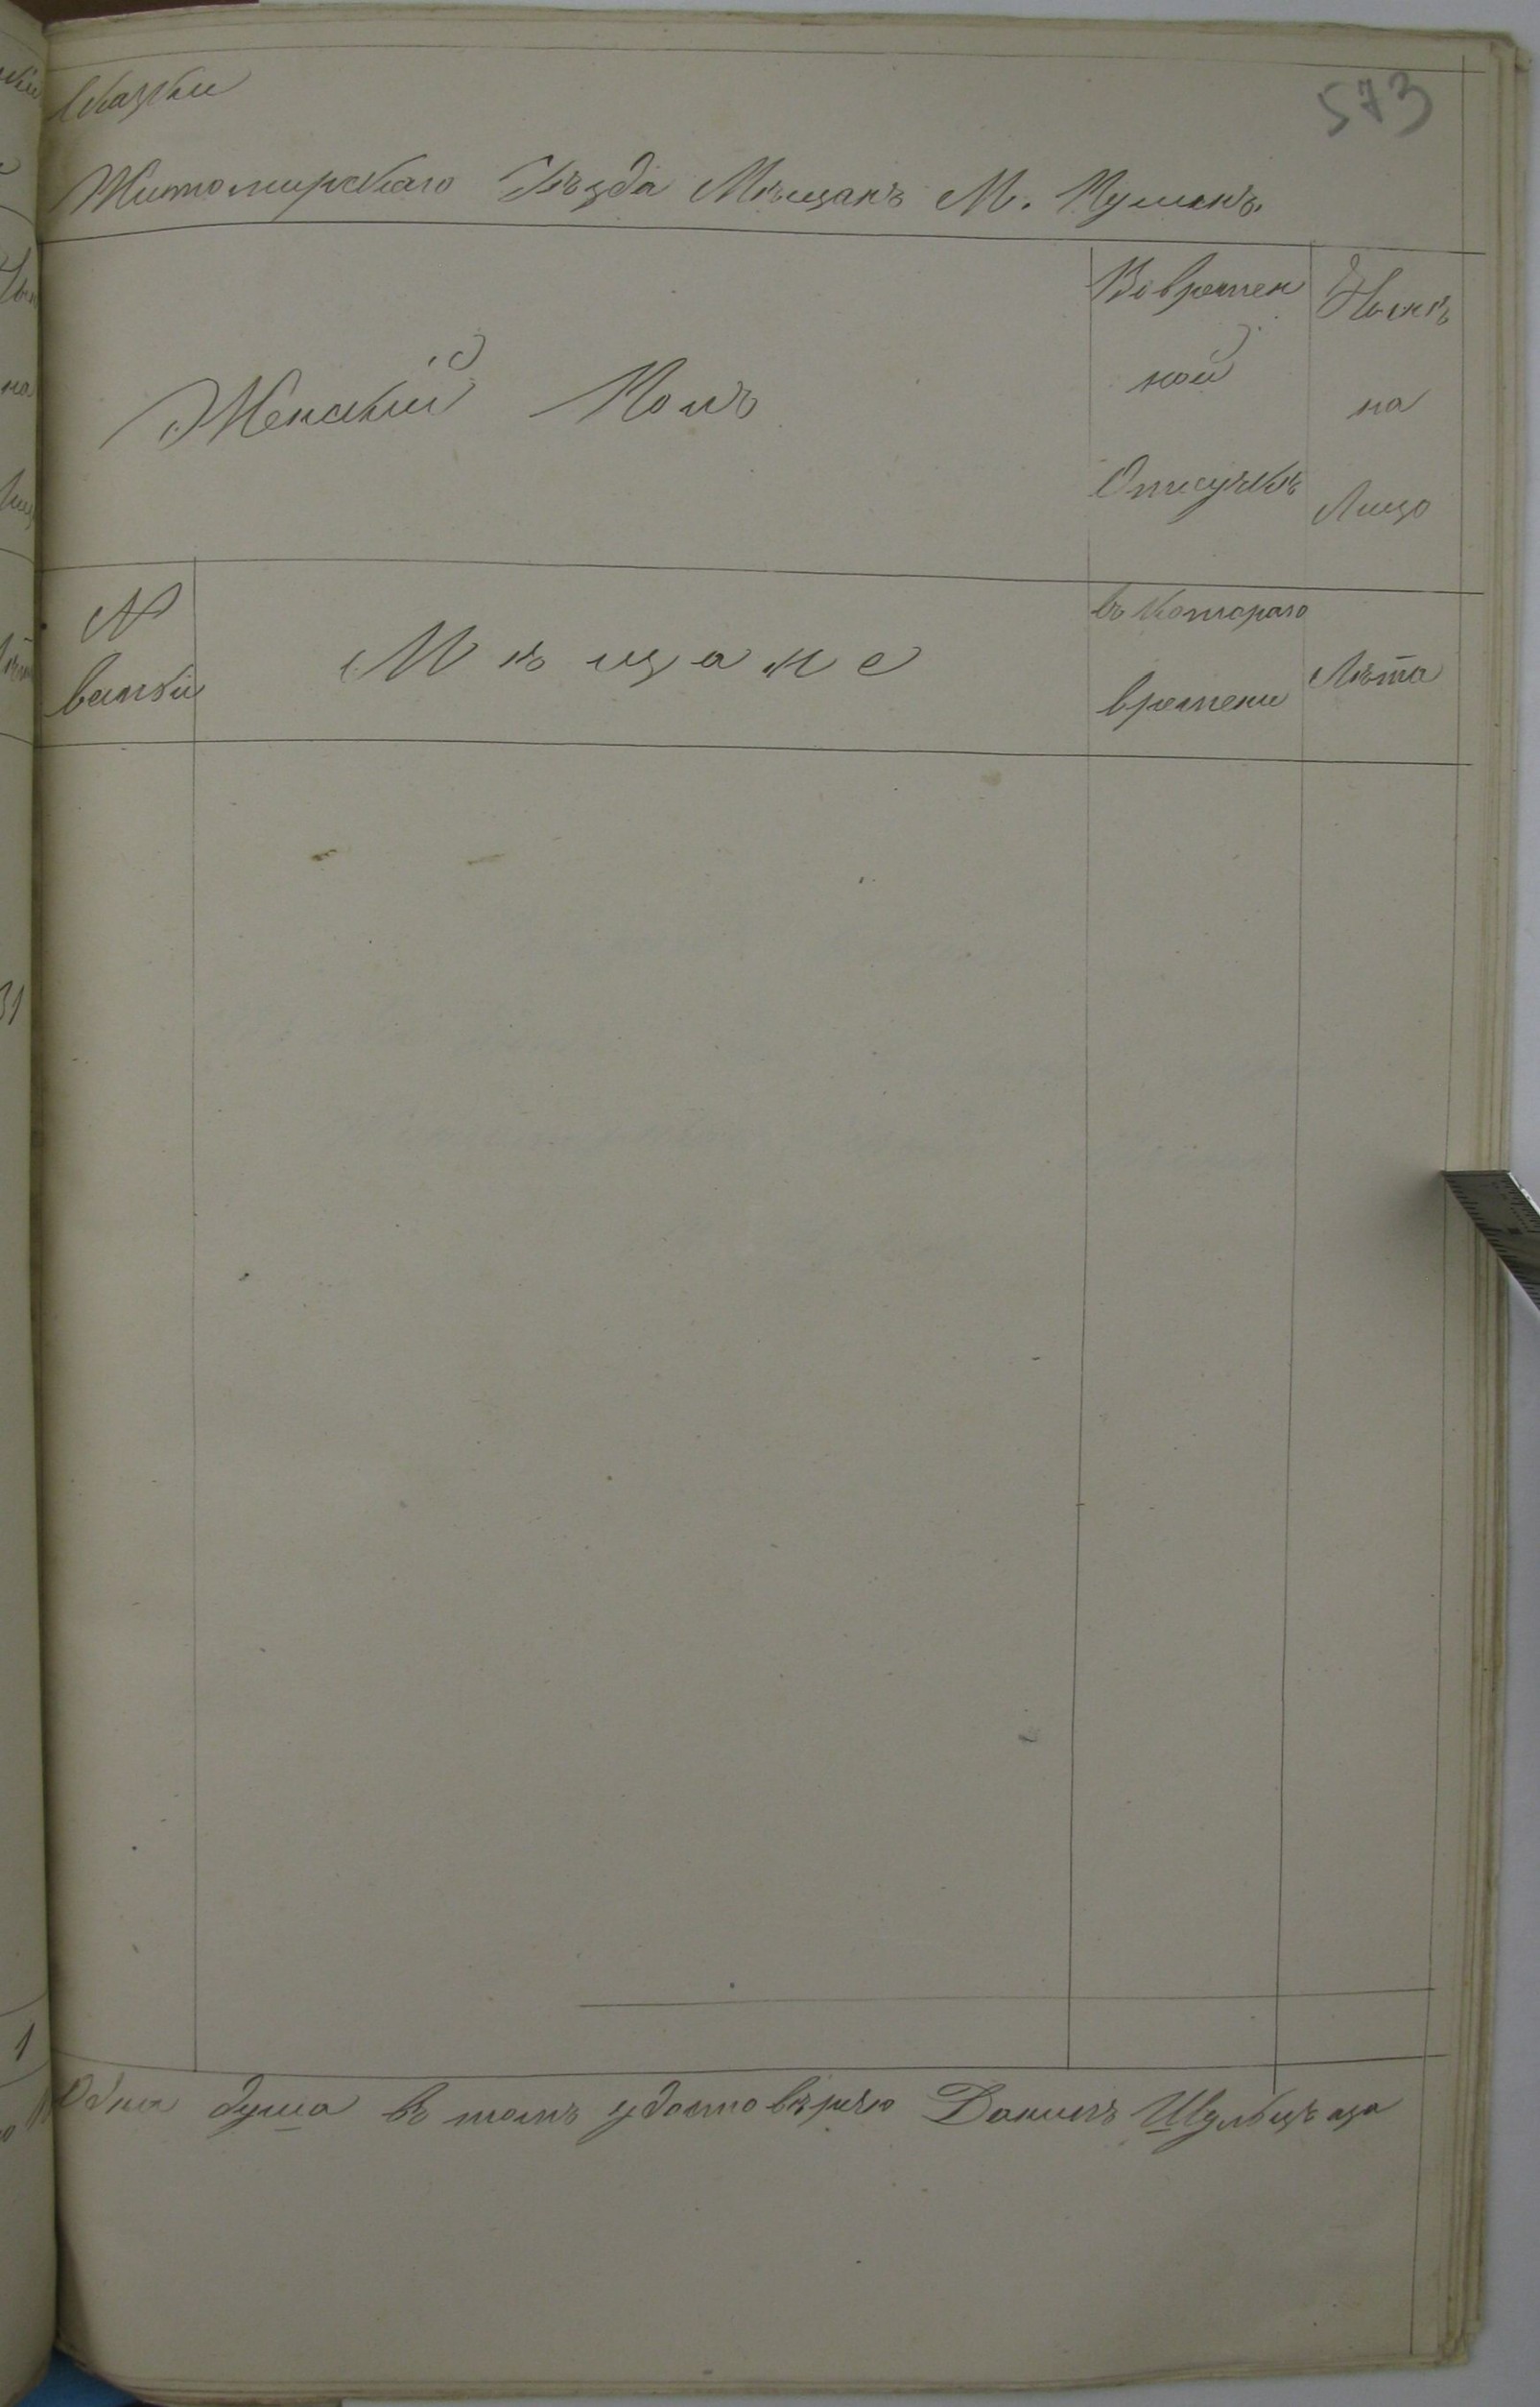 573
сказки
Житомирскаго Уѣзда Мѣщанъ М. Пулинъ
Женскій Полъ
Во времен
ной
Отлучкѣ
Нынѣ
на
Лицо
№
Мѣщане
съ котораго
времени
Лѣта
душа въ томъ удостовѣряю Даниль